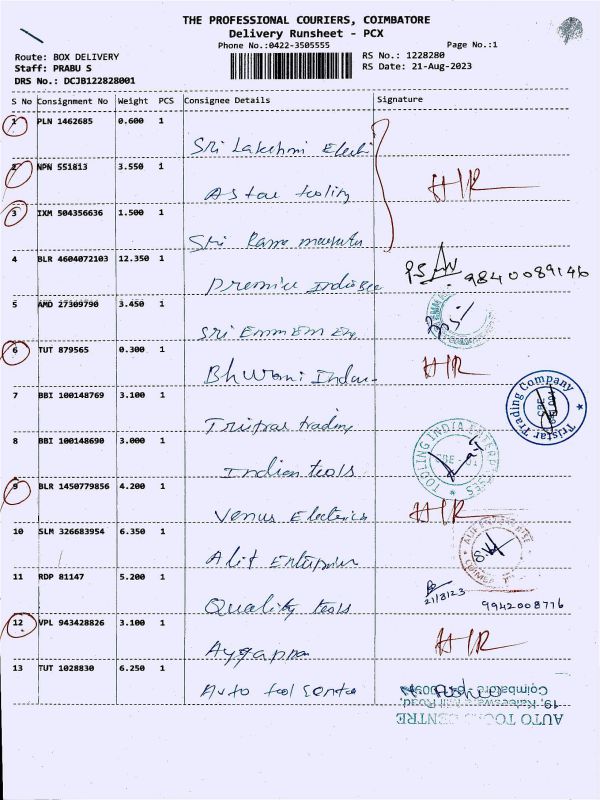 THE PROFESSIONAL COURIERS, COIMBATORE
Delivery Runsheet - PCX
Phone No.:0422-3505555
Page No.:1
Route: BOX DELIVERY
RS No.: 1228280
Staff: PRABU S
RS Date: 21-Aug-2023
DRS No.: DCJB122828001
S No Consignment No Weight PCS Consignee Details Signature
1 PLN 1462685 0.600 1
Sri Lakshmi Elect
2 NPN 551813 3.550 1
H/R
Astar tooling
3 IXM 504356636 1.500 1
Sri Rama
4 BLR 4604072103 12.350 1
9840089146
5 AMD 27309790 3.450 1
Sri Emm Em
6 TUT 879565 0.300 1
H/R
7 BBI 100148769 3.100 1
Tristar Trading Company
CBE
Tristar trading
8 BBI 100148690 3.000 1
TOOLING INDIA
CBE
Indian tools
9 BLR 1450779856 4.200 1
H/R
Venus Electrics
10 SLM 326683954 6.350 1
11 RDP 81147 5.200 1
21/8/23
9942008776
Quality tools
12 VPL 943428826 3.100 1
H/R
Ayyappa
13 TUT 1028830 6.250 1
Auto tool centre
Coimbatore
AUTO TOOLS CENTRE